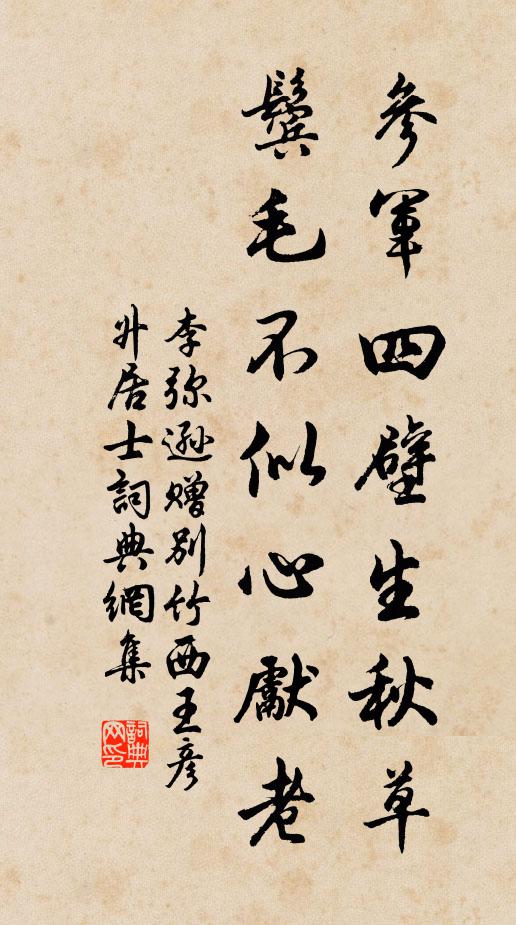 參軍四壁生秋草
鬢毛不似心獻老
李弥遜贈别竹西王彦
升居士詞典網集
詞典网印